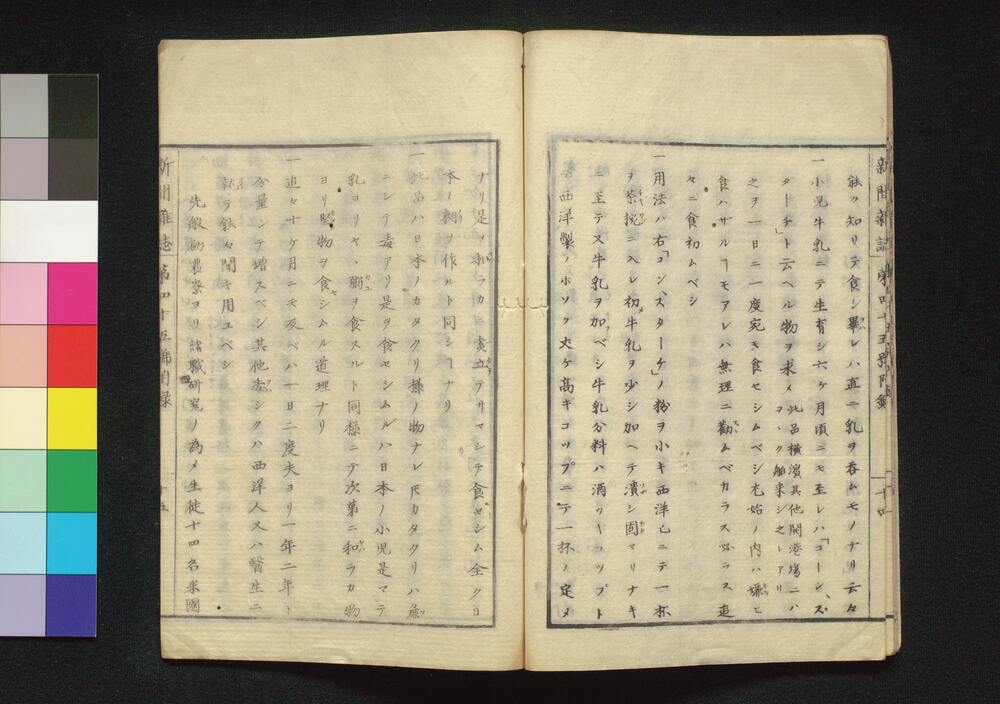 新聞雑誌 第四十五号附録 十四
能ク知リテ食シ畢レハ直ニ乳ヲ呑ムモノナリ云々
一小児牛乳ニテ生育シ六ケ月頃ニモ至レハ「コーン、ス
ターチ」ト云ヘル物ヲ求メ此品横濱其他開港場ニハヲヽク舶来シ之レアリ
之ヲ一日ニ一度宛モ食セシムベシ尤始ノ内ハ嫌ヒ
食ハザルヿモアレハ無理ニ勸ムベカラス必ラス追
々ニ食初ムベシ
一用法ハ右「コンスターチ」ノ粉ヲ小キ西洋匕ニテ一杯
ヲ茶椀ニ入レ初牛乳ヲ少シ加ヘテ潰シ固マリナキ
ニ至テ又牛乳ヲ加ベシ牛乳分料ハ酒ノコップト
西洋製ノホソク丈ケ高キコップニテ一杯ノ定メ
ナリ是ヲ和ラカニ煮立テサマシテ食セシム全クヨ
本ノ糊ヲ作ルト同シヿナリ
一此品ハ日本ノカタクリ様ノ物ナレ𪜈カタクリハ
ニシテ毒アリ是ヲ食セシムルハ日本ノ小児是マテ
乳ヨリ粥ヲ食スルト同様ニテ次第ニ和ラカ物
ヨリ堅物ヲ食シムル道理ナリ
一追々十ケ月ニモ及ベハ一日ニ二度夫ヨリ一年二年ト
分量シテ増スベシ其他委シクハ西洋人又ハ醫生ニ
就テ能々聞キ用ユベシ
先般的農寮ヨリ諸職研究ノ為メ生徒十四名米國
新聞雑誌 第四十五号附録 十五